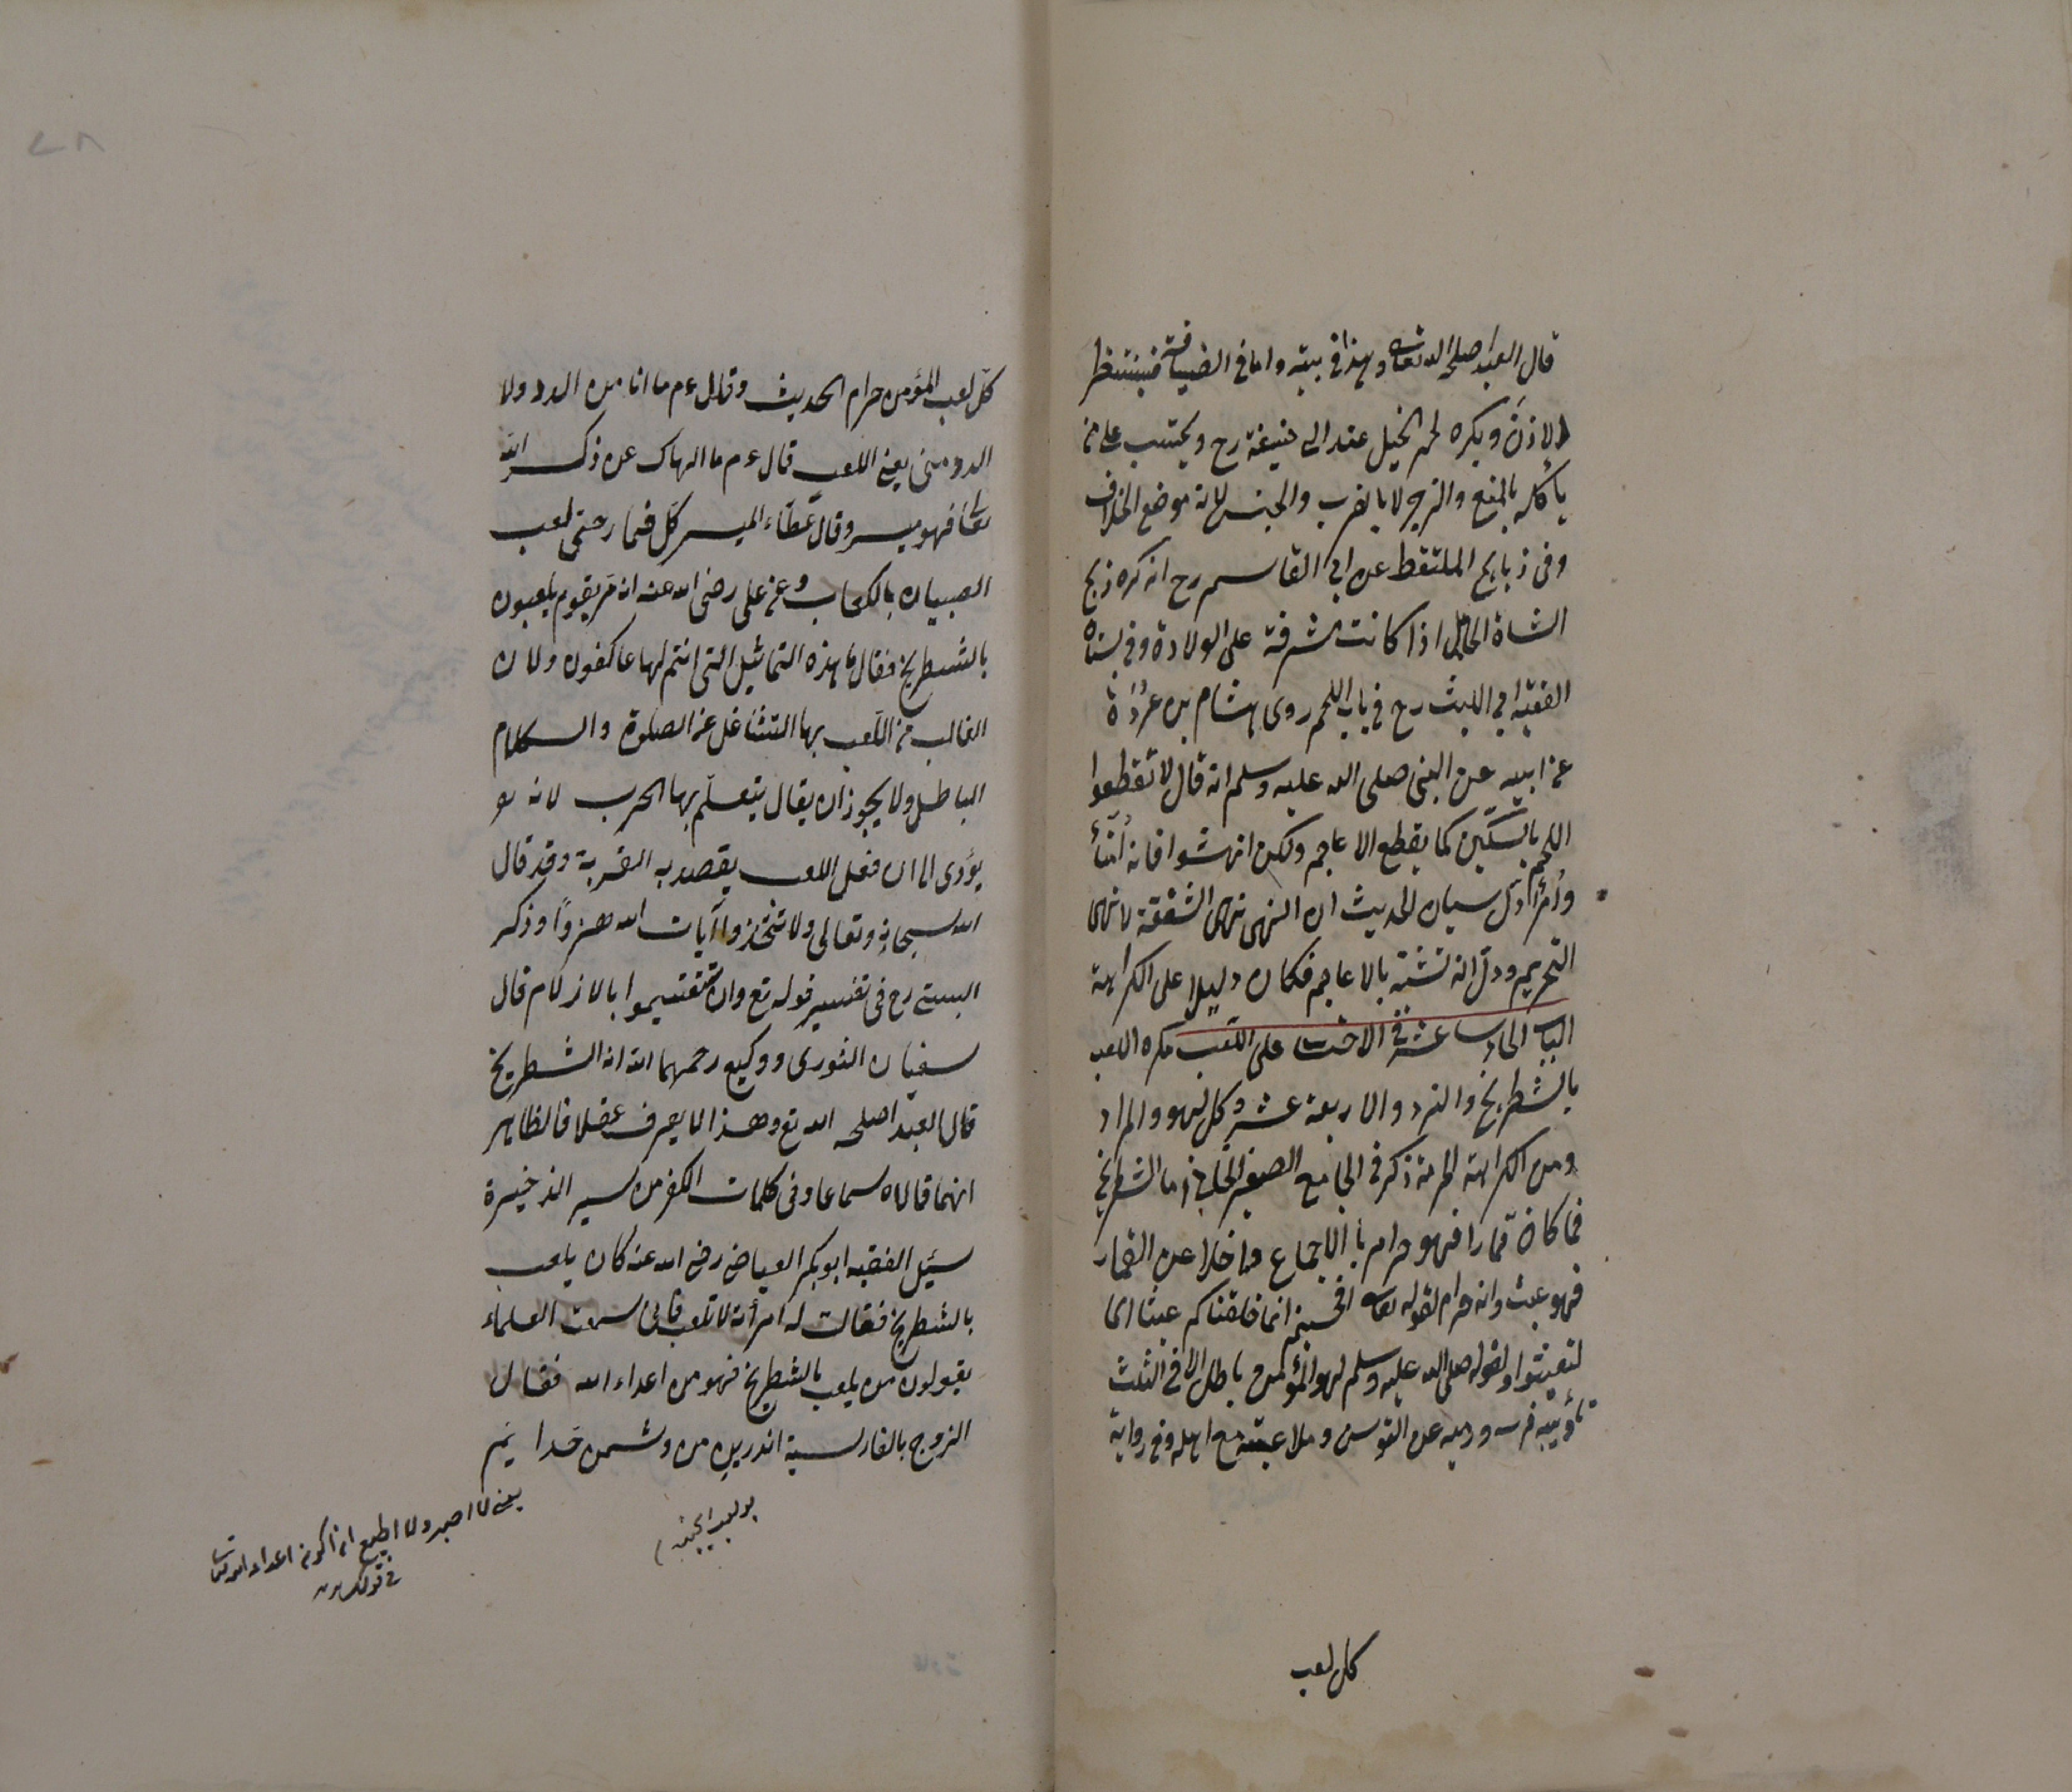 قال العبد اصلحه الله تعالى وهذا فى بيته واما فى الضيافة فينتظر
الاذن ويكره لحم الخيل عند ابى حنيفة رح ويحتسب على من
يأكله بالمنع والزجر لا بالضرب والحبس لانه موضع الخلاف
وفى ذبايح الملتقط عن ابى القاسم رح انه كره ذبح
الشاة الحامل اذا كانت مشرفة على الولادة وفى بستان
الفقيه ابى الليث رح فى باب اللحم روى هشام بن عروة
عن ابيه عن النبى صلى الله عليه وسلم انه قال لا تقطعوا
اللحم بالسكين كما يقطع الاعاجم ولكن انهشوا فانه أهنأ
وأمرأ دل سياق الحديث ان النهى نهى الشفقة لا نهى
التحريم ودل انه تشبه بالاعاجم فكان دليلا على الكراهة
الباب الحادى عشر فى الاحتساب على اللعب يكره اللعب
بالشطرنج والنرد والاربعة عشر وكل لهو والمراد
ومن الكراهة الحرمة ذكر فى الجامع الصغير الخانى اما الشطرنج
فما كان قمارا فهو حرام بالاجماع وما خلا عن القمار
فهو عبث وانه حرام لقوله تعالى افحسبتم انما خلقناكم عبثا اى
لتعبثوا ولقوله صلى الله عليه وسلم لهو المؤمن باطل الا فى الثلث
تأديبه فرسه ورميه عن القوس وملاعبته مع اهله وفى رواية
كل لعب
كل لعب المؤمن حرام الحديث وقال ءم ما انا من الدد ولا
الدد منى يعنى اللعب قال ءم ما الهاك عن ذكر الله
تعالى فهو ميسر وقال عطاء الميسر كل قمار حتى لعب
الصبيان بالكعاب وعن على رضى الله عنه انه مر بقوم يلعبون
بالشطرنج فقال ما هذه التماثيل التى انتم لها عاكفون ولان
الغالب من اللعب بها التشاغل عن الصلوة والكلام
الباطل ولا يجوز ان يقال يتعلم بها الحرب لانه لو
يؤدى الى ان فعل اللعب يقصد به القربة وقد قال
الله سبحانه وتعالى ولا تتخذوا آيات الله هزوا وذكر
البستى رح فى تفسير قوله تع وان تستقسموا بالازلام قال
سفيان الثورى ووكيع رحمهما الله انه الشطرنج
قال العبد اصلحه الله تع وهذا لا يعرف عقلا فالظاهر
انهما قالاه سماعا وفى كلمات الكفر من سير الذخيرة
سئل الفقيه ابو بكر العياضى رضى الله عنه كان يلعب
بالشطرنج فقالت له امرأته لا تلعب فانى سمعت العلماء
يقولون من يلعب بالشطرنج فهو من اعداء الله فقال
الزوج بالفارسية اندرين من دشمن خدايم
يعنى لا اصبر ولا اطيع ان اكون اعداء الله تعالى
فى قولك